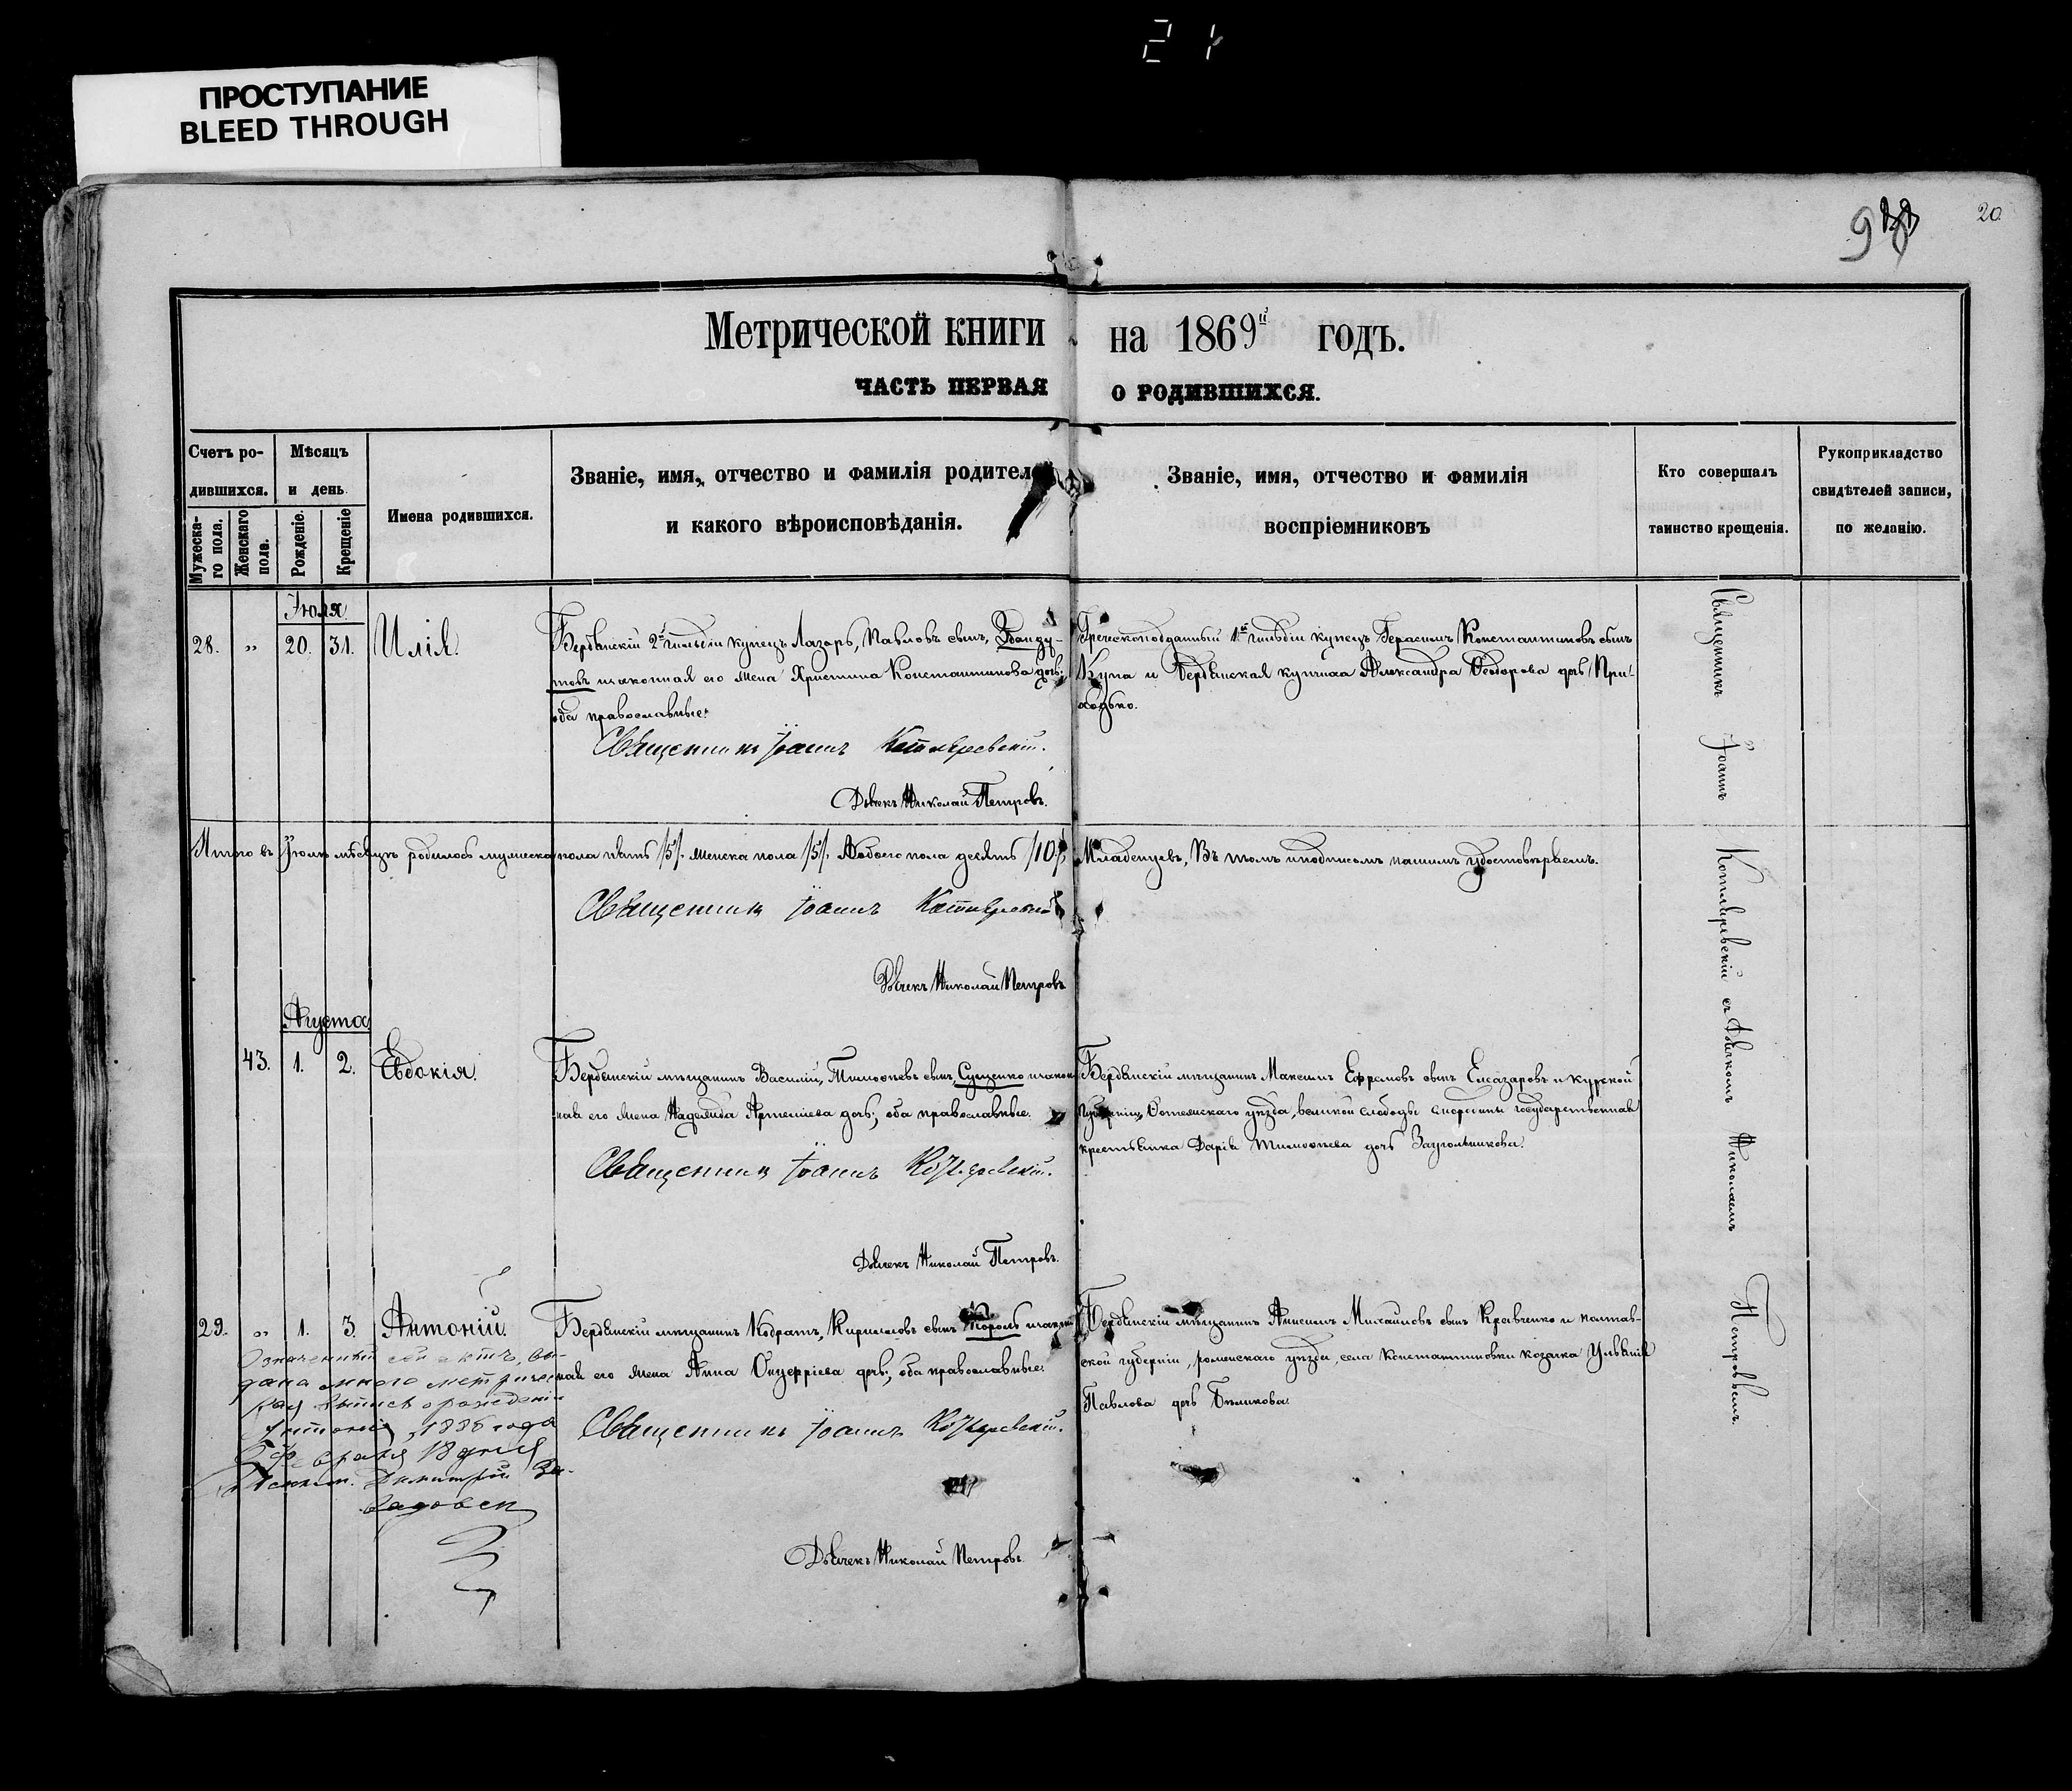 24
ПРОСТУПАНИЕ
BLEED THROUGH
20
Метрической книги на 1869й годъ.
ЧАСТЬ ПЕРВАЯ О РОДИВШИХСЯ.
Счетъ родившихся.
Мужеска-го пола.
Женскаго пола.
Мѣсяцъ и день
Рожденіе.
Крещеніе
Имена родившихся.
Званіе, имя, отчество и фамилія родителей
и какого вѣроисповѣданія.
Званіе, имя, отчество и фамилія
воспріемниковъ
Кто совершалъ
таинство крещенія.
Рукоприкладство
свидѣтелей записи,
по желанію.
Іюля
28. „ 20. 31. Илія
Бердянскій 2й гильдіи купецъ Лазарь, Павловъ сынъ,
законная его жена Христина Константинова дочь;
оба православные.
Священникъ Іоаннъ Котляревскій.
Дьячекъ Николай Петровъ.
Греческоподданный 1й гильдіи купецъ Герасимъ Константиновъ сынъ
Купа и Бердянская купчиха Александра Ѳеодорова дочь При-
ходько.
Итого въ Іюлѣ мѣсяцѣ родилось мужеска пола пять /5/. женска пола /5/. Обоего пола десять /10/.
Младенцевъ, Въ томъ и подписомъ нашимъ удостовѣряемъ.
Священникъ Іоаннъ Котляревскій
Дьячекъ Николай Петровъ
Августа
43. 1. 2. Евдокія.
Бердянскій мѣщанинъ Василій, Тимоѳеевъ сынъ, Сущенко и закон-
ная его жена Надежда Артеміева дочь; оба православные.
Священникъ Іоаннъ Котляревскій.
Дьячекъ Николай Петровъ.
Бердянскій мѣщанинъ Максимъ Ефремовъ сынъ Елеазаровъ и курской
губерніи, уѣзда, великой слободы государственная
крестьянка Дарія Тимоѳеева дочь Заугольникова.
29. „ 1. 3. Антоній.
Бердянскій мѣщанинъ Кодратъ, Кирилловъ сынъ Король и закон-
ная его жена Анна Онуфріева дочь; оба православные.
Священникъ Іоаннъ Котляревскій.
Дьячекъ Николай Петровъ.
Бердянскій мѣщанинъ Анисимъ Михаиловъ сынъ Кравченко и полтав-
ской губерніи, роменскаго уѣзда, села Константиновки козачка Ульянія
Павлова дочь Бѣликова.
Означенный сей актъ, вы-
дана мною метричес-
кая выпись о рожденіи
Антонія, 1886 года
Февраля 18 дня
Димитрій За-
вадовск
Священникъ Іоаннъ Котляревскій съ дьячкомъ Николаемъ Петровымъ.